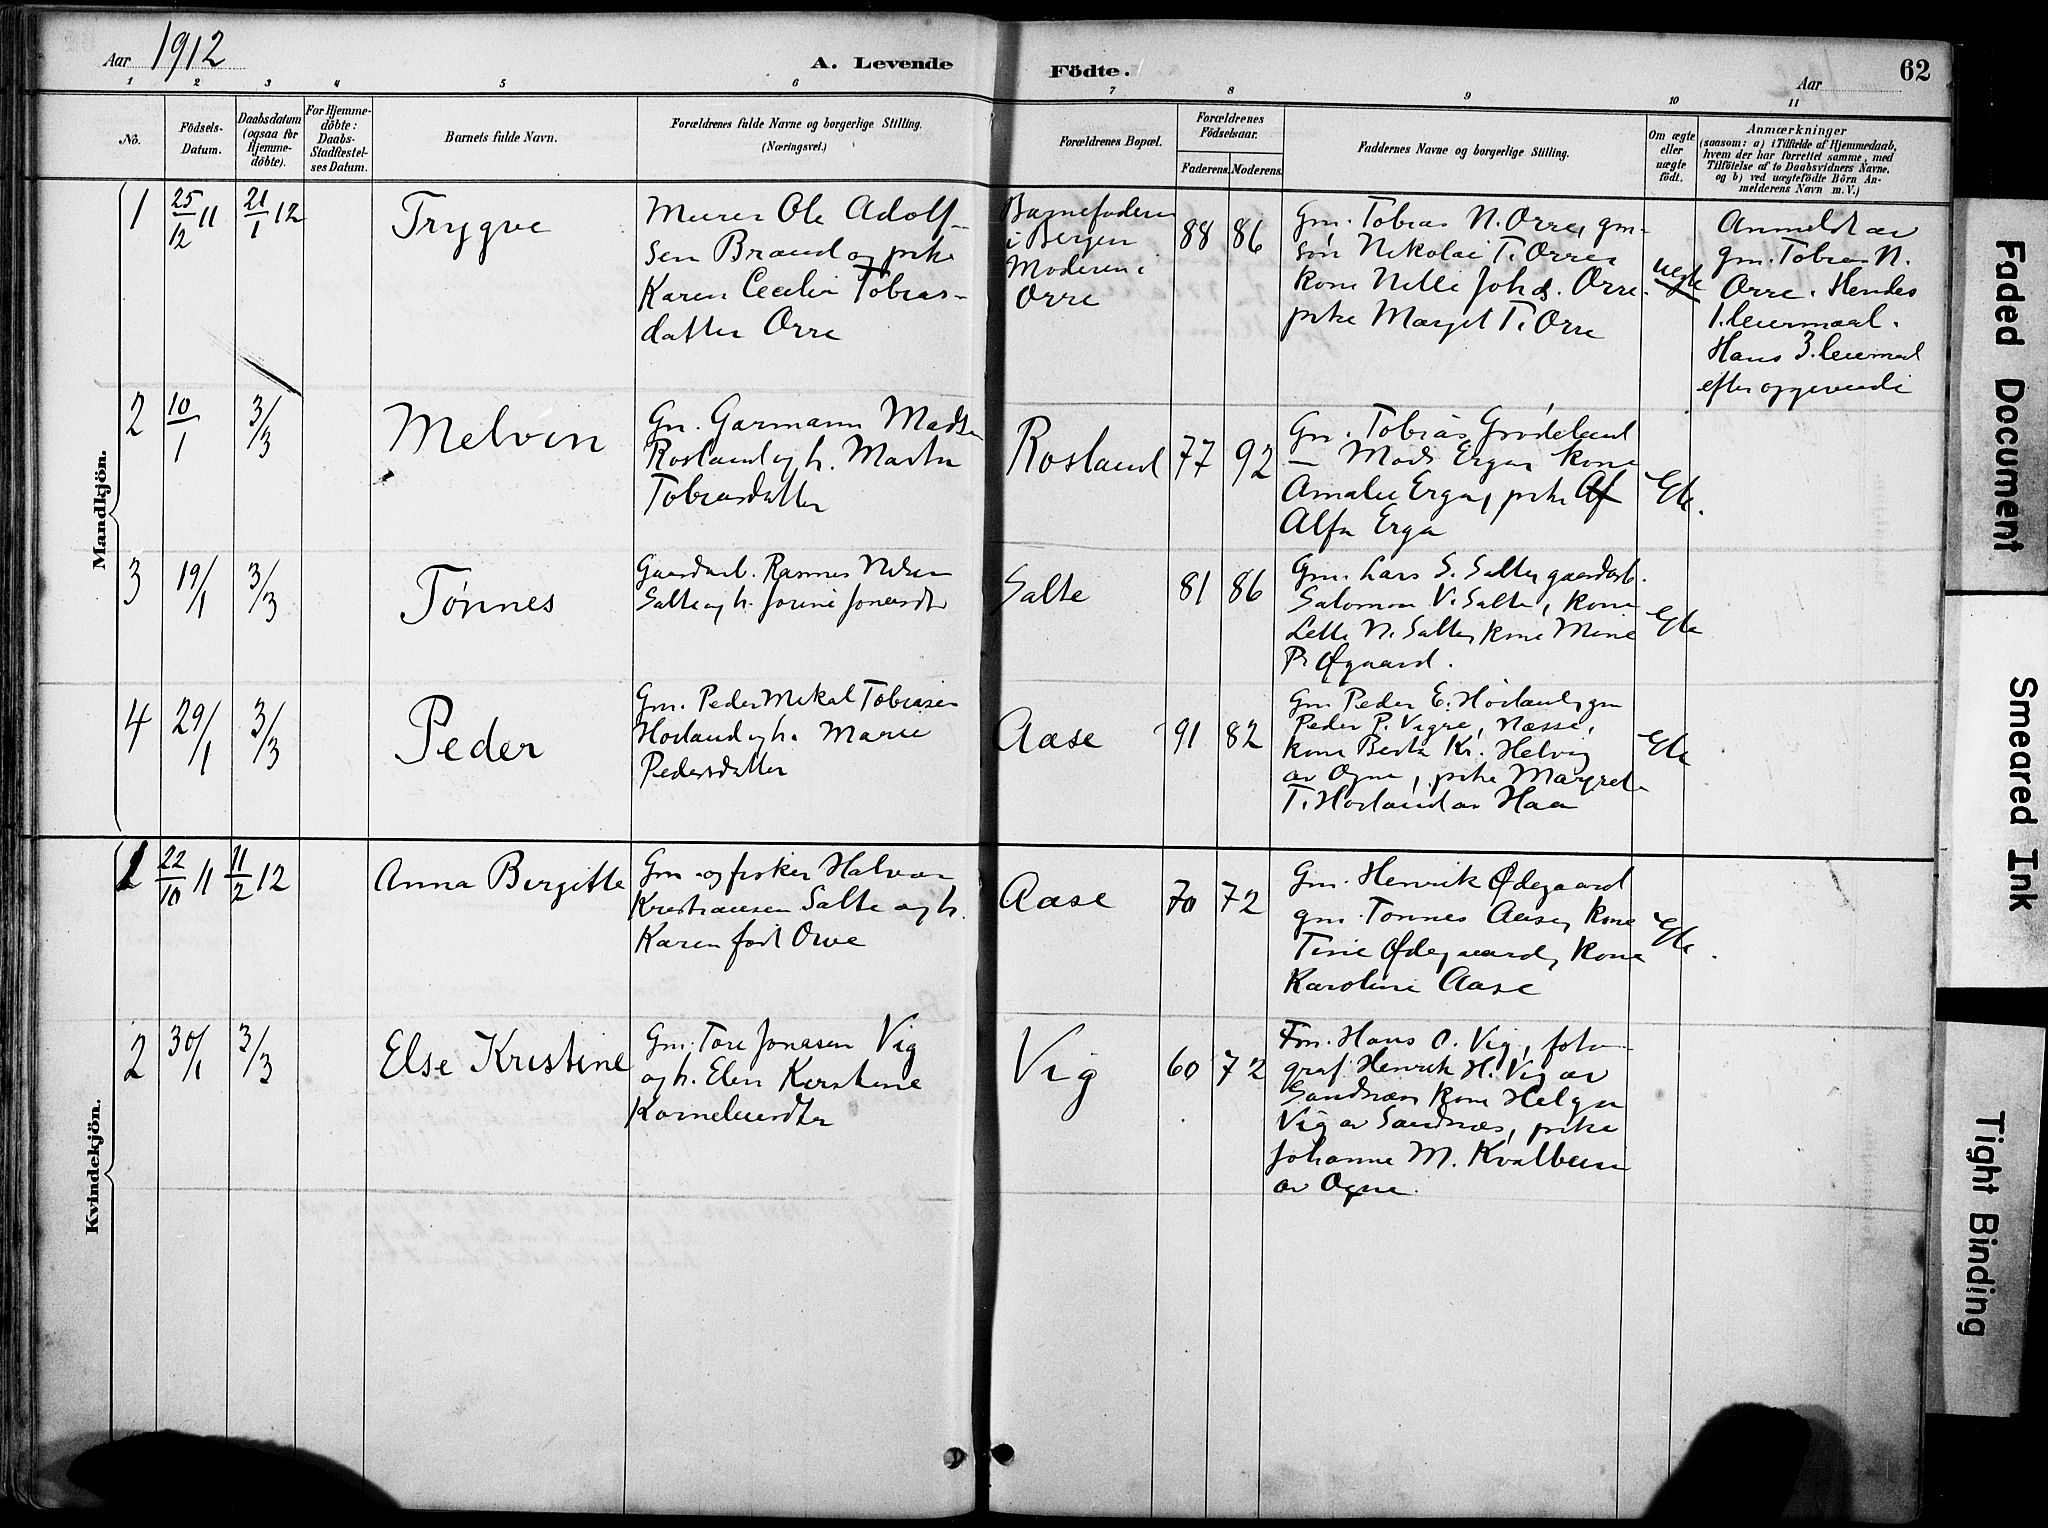 Aar 1912
A. Levende
Födte.
Aar
62
1 2 3 4 5 6 7 8 9 10 11
No.
Födsels-
Datum.
Daabsdatum
(ogsaa for
Hjemme-
döbte).
For Hjemme-
döbte:
Daabs-
Stadfæstel-
ses Datum.
Barnets fulde Navn.
Forældrenes fulde Navne og borgerlige Stilling.
(Næringsvei.)
Forældrenes Bopæl.
Forældrenes
Födselsaar.
Faderens. Moderens.
Faddernes Navne og borgerlige Stilling.
Om ægte
eller
uægte
født.
Anmærkninger
(saasom: a) i Tilfælde af Hjemmedaab,
hvem der har forrettet samme, med
Tilföielse af to Daabsvidners Navne,
og b) ved uægtefödte Börn An-
melderens Navn m. V.)
Mandkjön.
1
25/12 11
21/1 12
Trygve
Murer Ole Adolf-
sen Braud og pike
Karen Cecilie Tobias-
datter Orre
Barnefaderen
i Bergen
Moderen i
Orre
88
86
Gm. Tobias N. Orre, gm-
søn Nikolai T. Orre,
kone Nelli Johs. Orre.
pike Marget T. Orre
uegte
Anmeldt av
gm. Tobias N.
Orre. Hendes
1. leiermaal.
Hans 3. leiermaal
efter opgivende
2
10/1
3/3
Melvin
Gm. Garmann Madsen
Rosland og h. Marta
Tobiasdatter
Rosland
77
92
Gm. Tobias Grødeland
— Mads Erga, kone
Amalie Erga, pike Af
Alfa Erga
Egte.
3
19/1
3/3
Tønnes
Gaardarb. Rasmus
Salte og h. Jorine
Salte
81
86
Gm. Lars S. Salte, gaardarb.
Salomon V. Salte, kone
Lette N. Salte, kone Mine
P. Øgaard.
Egte
4
29/1
3/3
Peder
Gm. Peder Mikal Tobiasen
Horland og h. Marie
Pedersdatter
Aase
91
82
Gm Peder E. Horland, gm
Peder P. Vigre, Næsse,
kone Berta Kr. Helvig
av Ogna, pike Margrete
T. Horland av Haa
Egte
Kvindekjön.
1
22/10 11
11/2 12
Anna Birgitte
Gm. og fisker Halvar
Kristiansen Salte og h.
Karen født Orre
Aase
70
72
Gm. Henrik Ødegaard
gm. Tønnes Aase, kone
Tine Ødegaard, kone
Karoline Aase
Egte.
2
30/1
3/3
Else Kristine
Gm. Tore Jonasen Vig
og h. Elen Kirstine
Korneliusdtr
Vig
60
72
Fm. Hans O. Vig, foto-
graf Henrik H. Vig av
Sandnæs kone Helga
Vig av Sandnæs, pike
Johanne M. Kvalbein
av Ogna.
Faded Document
Smeared Ink
Tight Binding